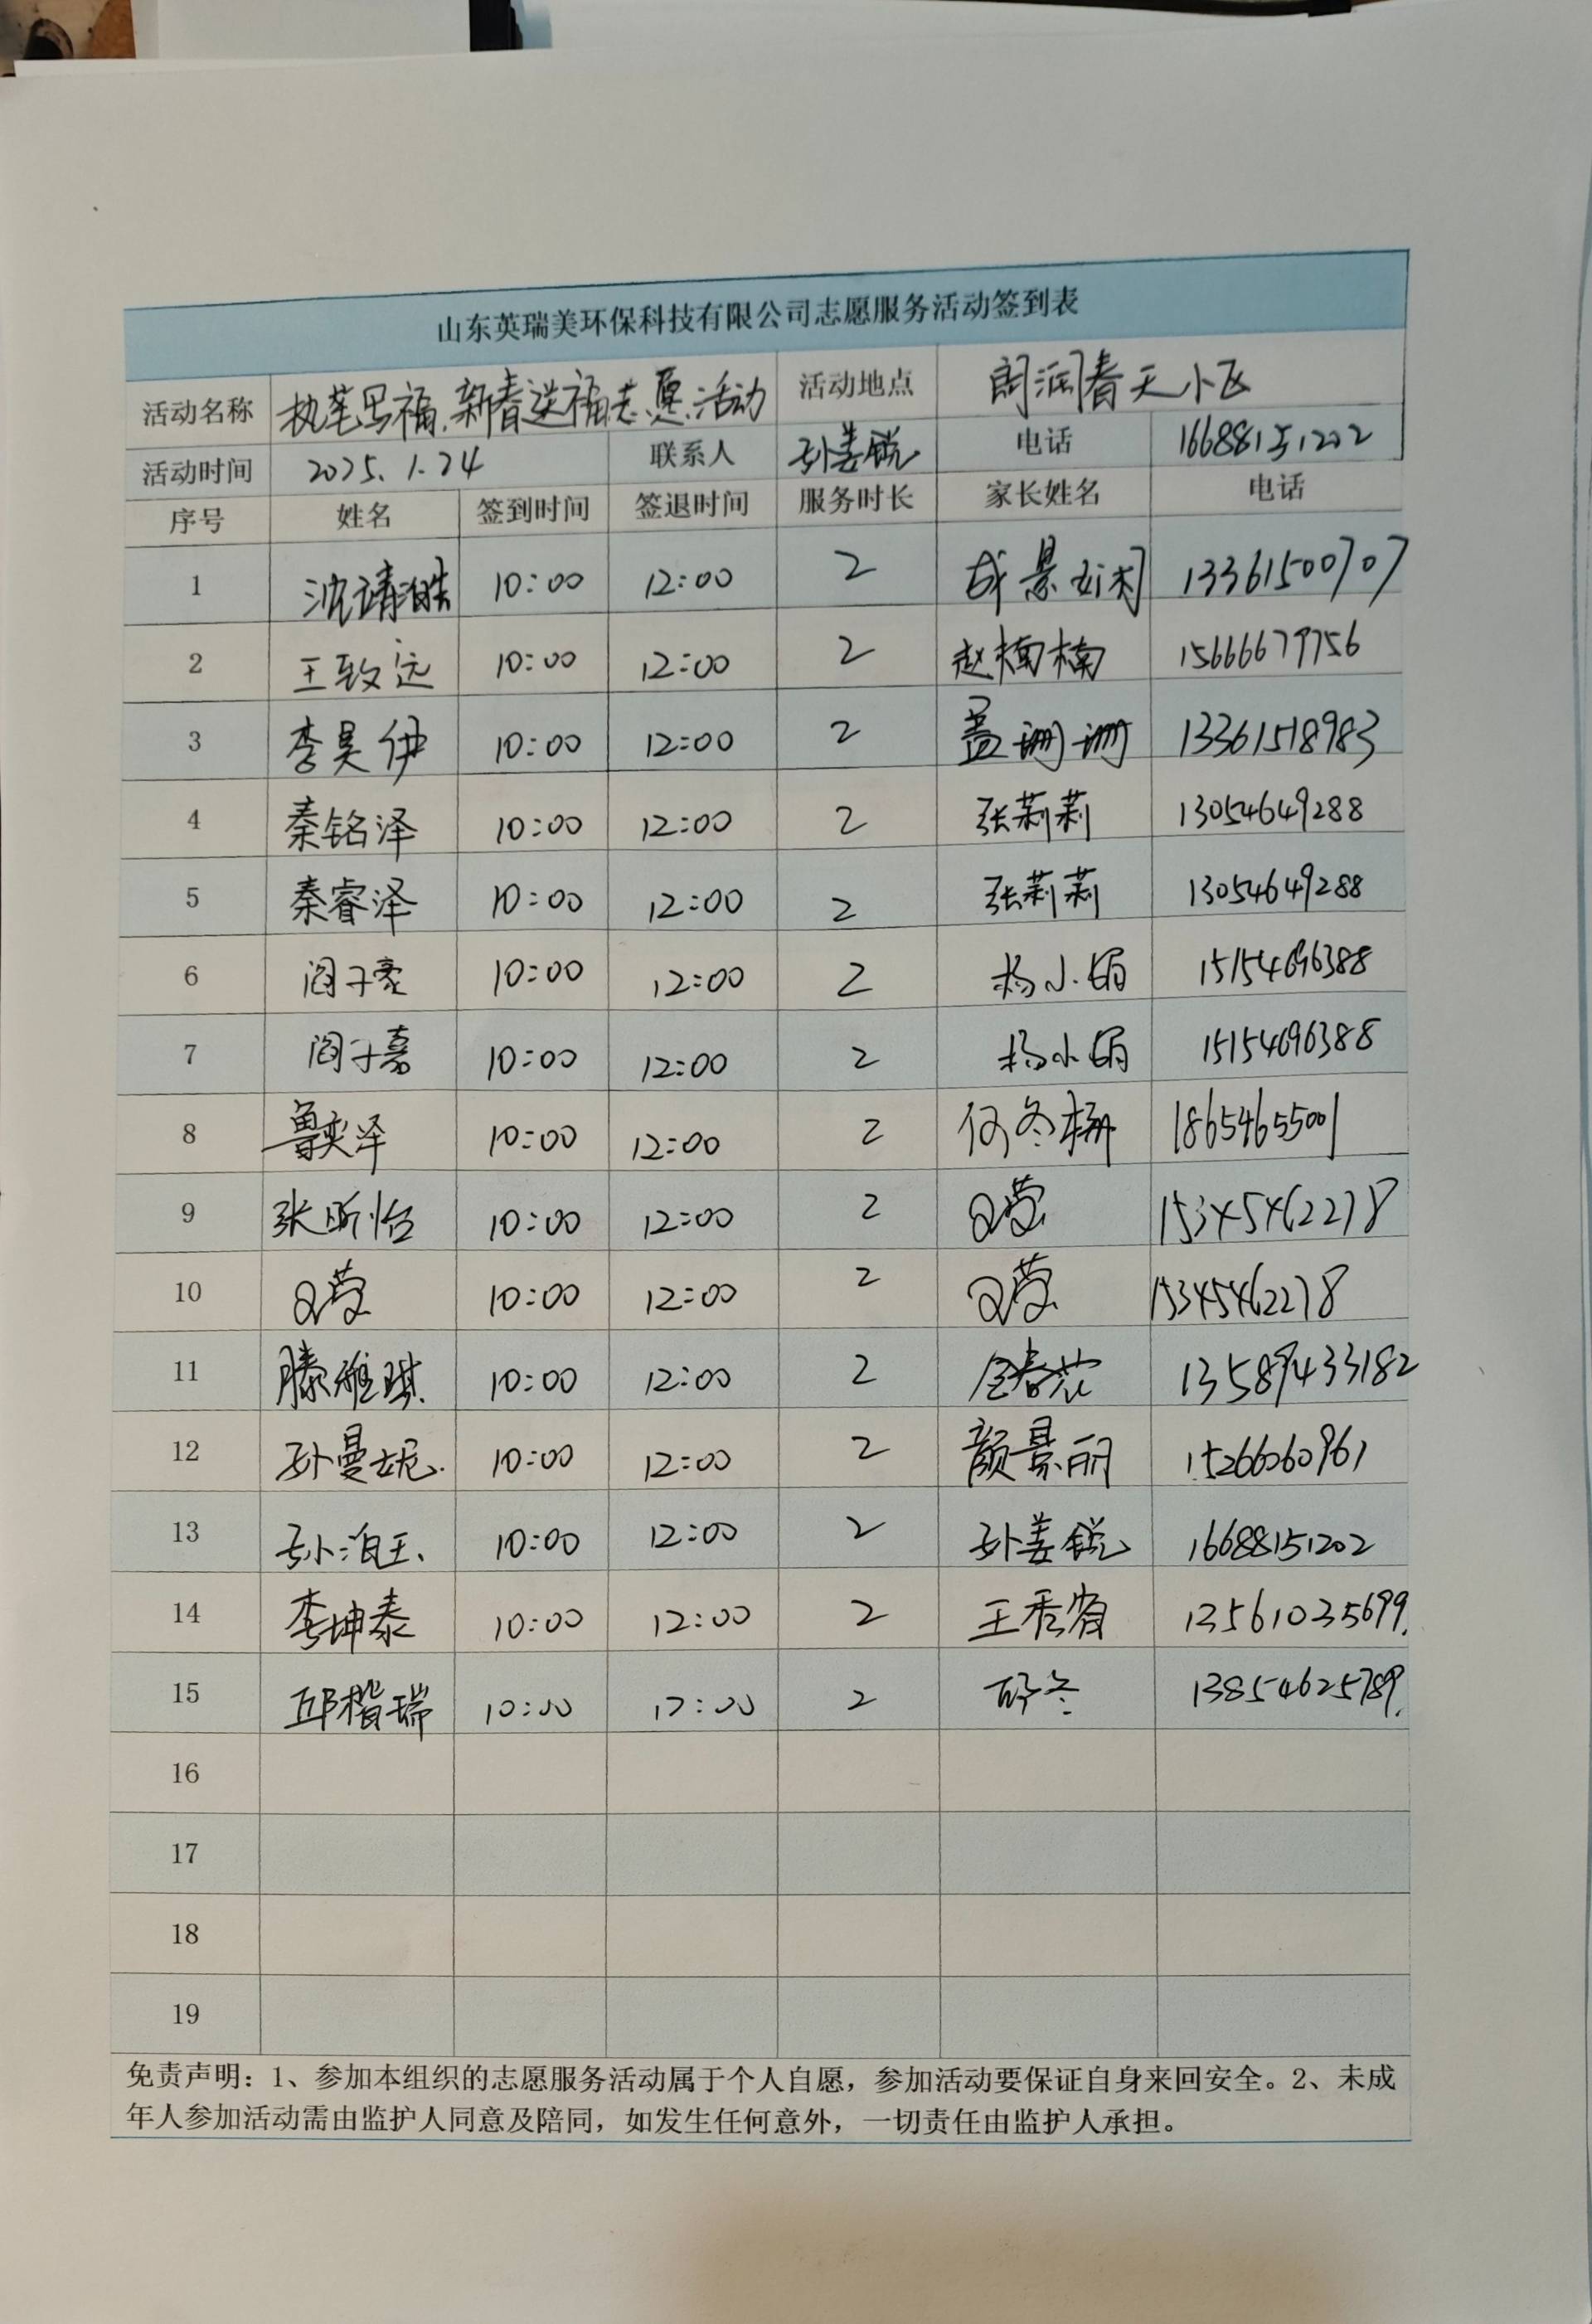 山东英瑞美环保科技有限公司志愿服务活动签到表
活动名称 执笔写福,新春送福志愿活动 活动地点 润春天小区
活动时间 2025.1.24 联系人 孙姜锐 电话 16688151202
序号 姓名 签到时间 签退时间 服务时长 家长姓名 电话
1 沈靖皓 10:00 12:00 2 成景 13361500707
2 王致远 10:00 12:00 2 赵楠楠 15666679756
3 李昊伊 10:00 12:00 2 盖珊珊 13361518983
4 秦铭泽 10:00 12:00 2 张莉莉 13054649288
5 秦睿泽 10:00 12:00 2 张莉莉 13054649288
6 阎子豪 10:00 12:00 2 杨小娟 15154696388
7 阎子嘉 10:00 12:00 2 杨小娟 15154696388
8 鲁奕泽 10:00 12:00 2 何冬梅 18654655001
9 张昕怡 10:00 12:00 2 15345462278
10 10:00 12:00 2 15345462278
11 滕雅琪 10:00 12:00 2 13589433182
12 孙曼妮. 10:00 12:00 2 颜景丽 15266060961
13 孙泊王、 10:00 12:00 2 孙姜锐 16688151202
14 李坤泰 10:00 12:00 2 王秀 13561035699.
15 邱楷瑞 10:00 12:00 2 13854625789.
16
17
18
19
免责声明：1、参加本组织的志愿服务活动属于个人自愿，参加活动要保证自身来回安全。2、未成
年人参加活动需由监护人同意及陪同，如发生任何意外，一切责任由监护人承担。